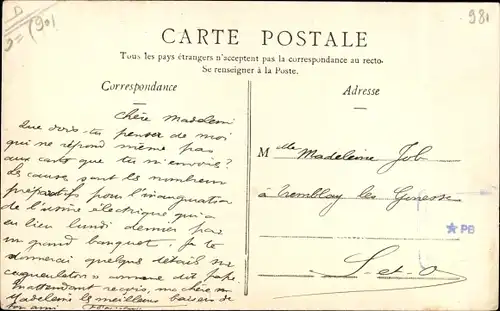 981
CARTE POSTALE
Tous les pays étrangers n'acceptent pas la correspondance au recto.
Se renseigner à la Poste.
Correspondance
Adresse
Chère Madeleine
Que dois-tu penser de moi
qui ne répond même pas
aux carte que tu m'envois?
La cause sont les nombreux
préparatifs pour l'inauguration
de l'usine électrique qui a
eu lieu lundi dernier par
un grand banquet. Je te
donnerai quelque détails ne
comme dit papa
En attendant reçois, ma chère
Madeleine les meilleurs baisers de
ton ami
Mlle Madeleine Job
à Tremblay les Gonesse
S-et-O
PB